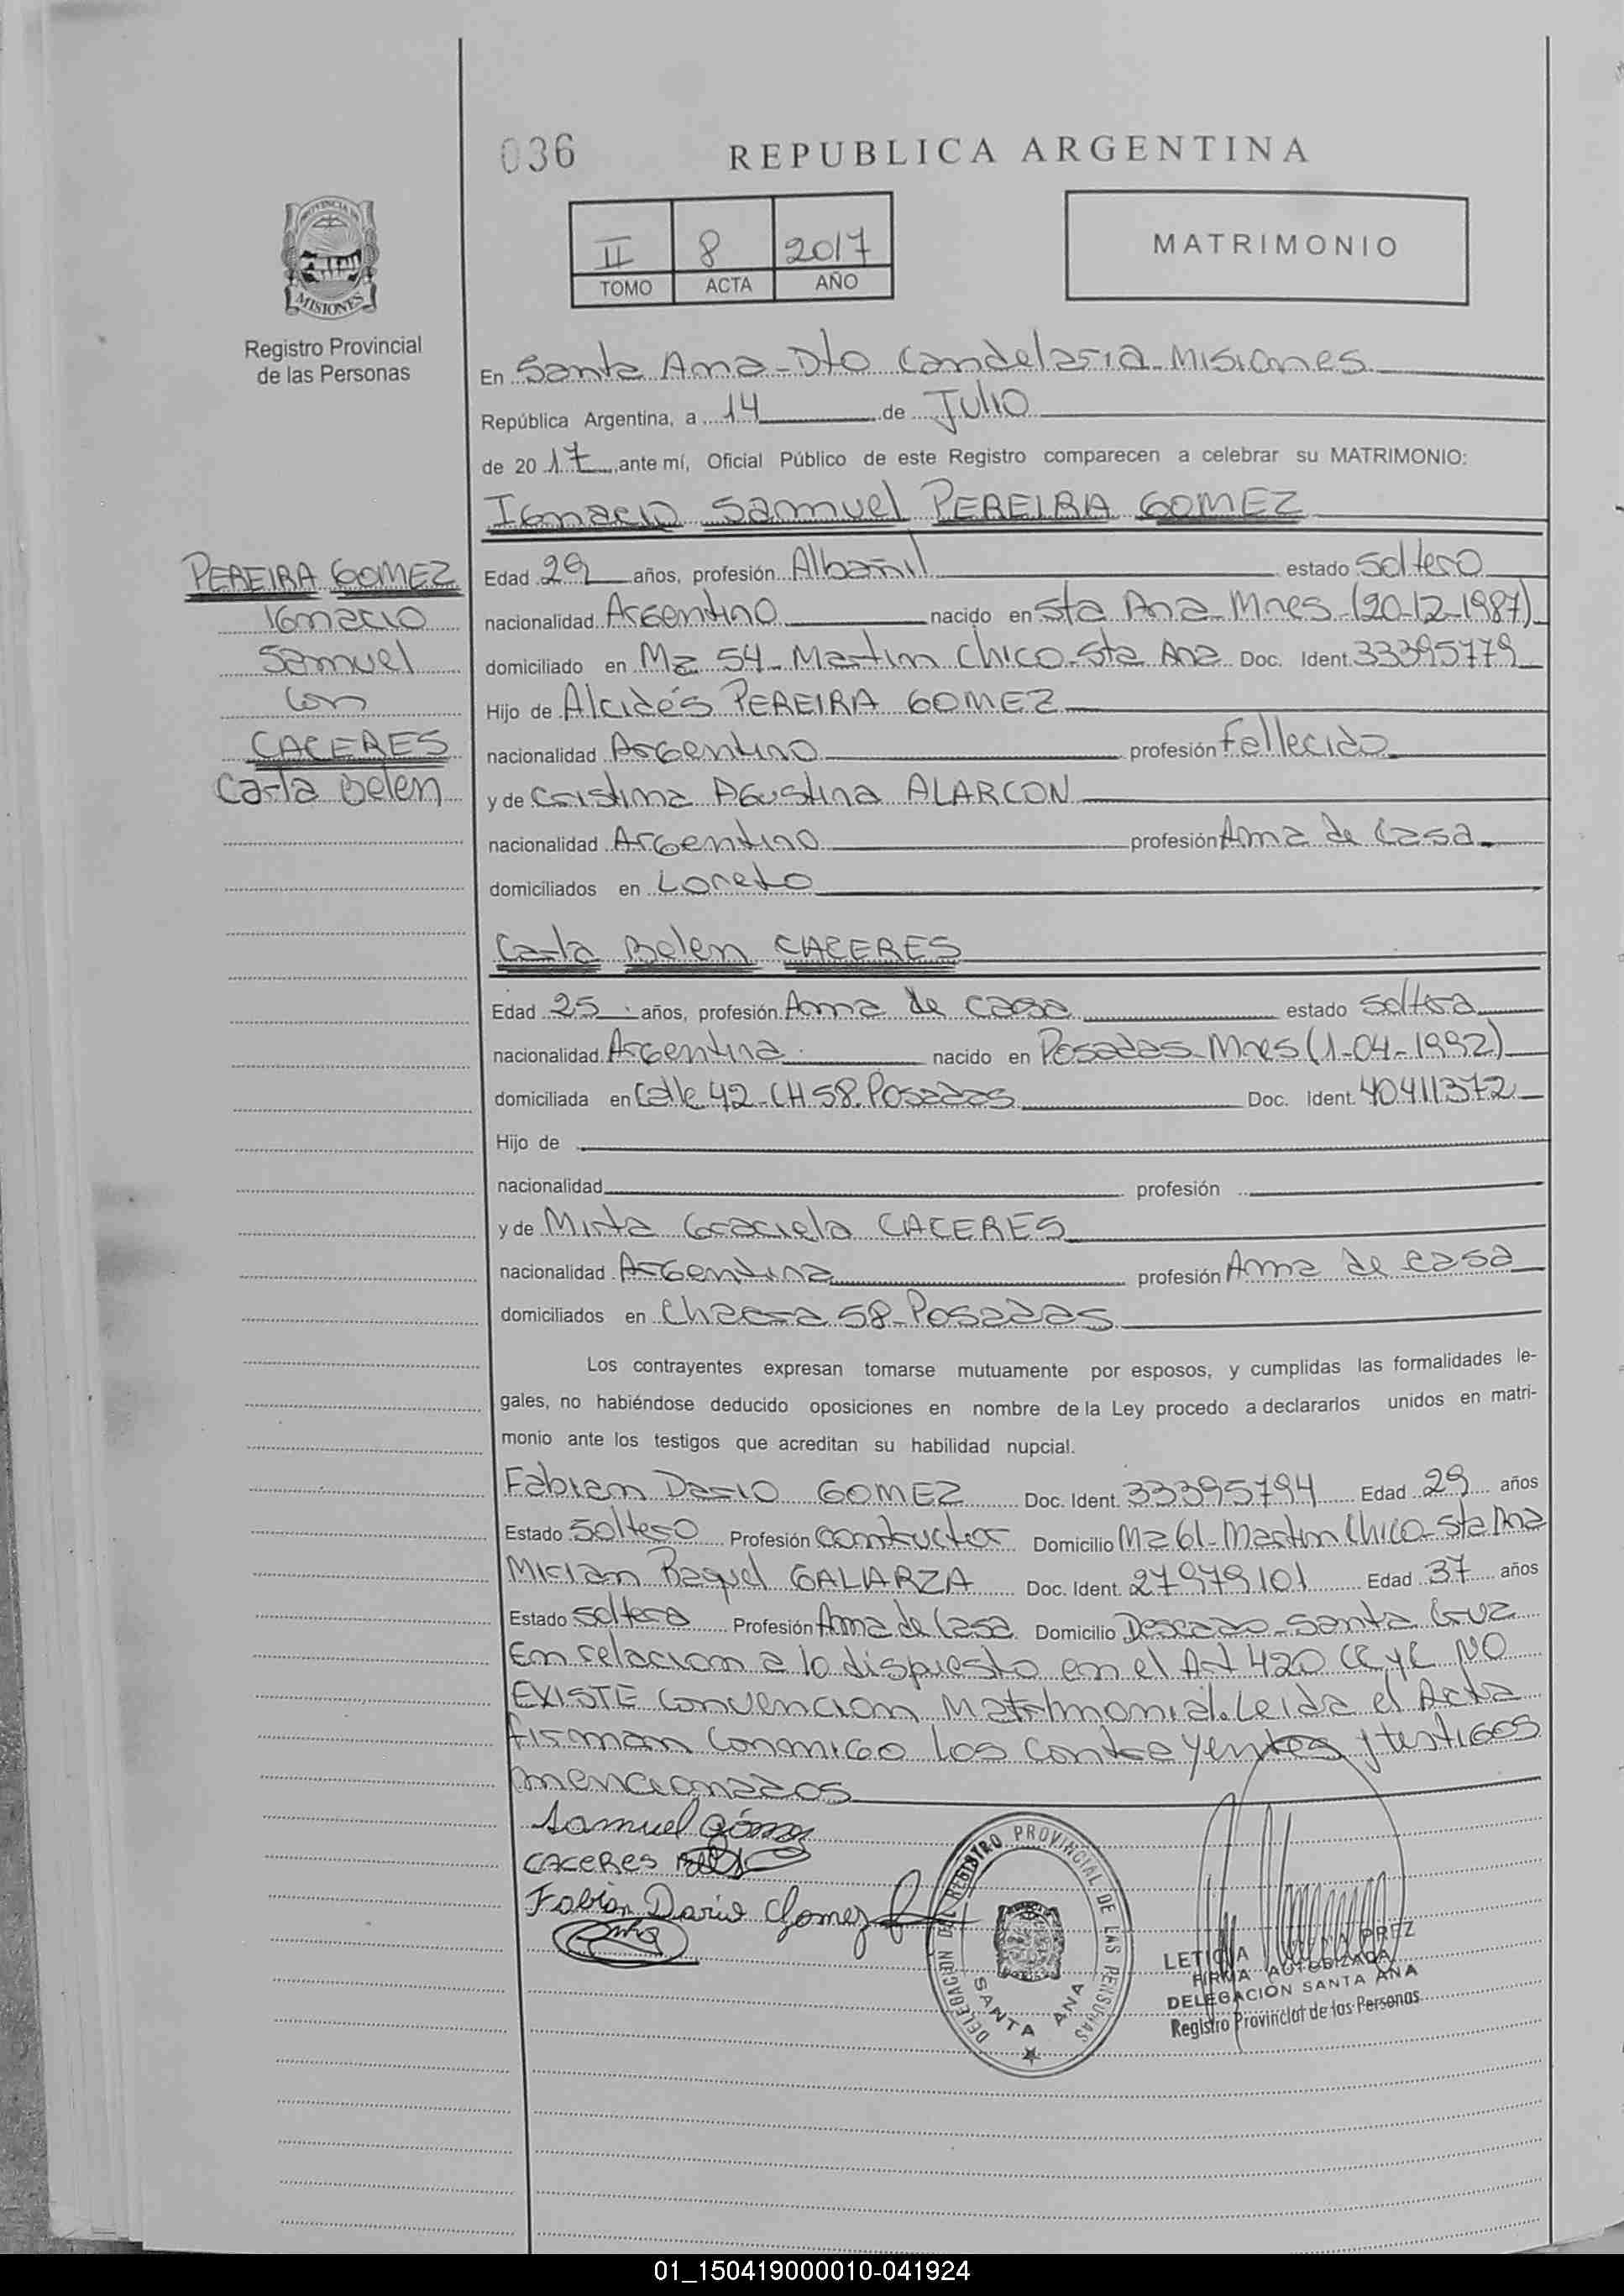 036
REPUBLICA ARGENTINA
PROVINCIA DE
MISIONES
II 8 2017
TOMO ACTA AÑO
MATRIMONIO
Registro Provincial
de las Personas
En Santa Ana - Dto Candelaria - Misiones
República Argentina, a 14 de Julio
de 2017, ante mí, Oficial Público de este Registro comparecen a celebrar su MATRIMONIO:
Ignacio Samuel PEREIRA GOMEZ
PEREIRA GOMEZ
Ignacio
Samuel
con
CACERES
Carla Belen
Edad 29 años, profesión Albañil estado Soltero
nacionalidad Argentino nacido en Sta Ana - Mnes - (20-12-1987)
domiciliado en Mz 54 - Martin Chico - Sta Ana Doc. Ident. 33395779
Hijo de Alcidés PEREIRA GOMEZ
nacionalidad Argentino profesión Fallecido
y de Cristina Agustina ALARCON
nacionalidad Argentino profesión Ama de Casa
domiciliados en Loreto
Carla Belen CACERES
Edad 25 años, profesión Ama de casa estado Soltera
nacionalidad Argentina nacido en Posadas - Mnes (1-04-1992)
domiciliada en Calle 42 - CH 58. Posadas Doc. Ident. 40411372
Hijo de
nacionalidad profesión
y de Mirta Graciela CACERES
nacionalidad Argentina profesión Ama de casa
domiciliados en Chacra 58 - Posadas
Los contrayentes expresan tomarse mutuamente por esposos, y cumplidas las formalidades le-
gales, no habiéndose deducido oposiciones en nombre de la Ley procedo a declararlos unidos en matri-
monio ante los testigos que acreditan su habilidad nupcial.
Fabian Dario GOMEZ Doc. Ident. 33395794 Edad 29 años
Estado Soltero Profesión Constructor Domicilio Mz 61 - Martin Chico - Sta Ana
Mirian Raquel GALIARZA Doc. Ident. 27979101 Edad 37 años
Estado Soltera Profesión Ama de Casa Domicilio Deseado - Santa Cruz
En relacion a lo dispuesto en el Art 420 CC y C NO
EXISTE Convencion Matrimonial. Leida el Acta
firman conmigo los contrayentes y testigos
mencionados
Samuel Gómez
CACERES
Fabián Dario Gomez
DELEGACIÓN DEL REGISTRO PROVINCIAL DE LAS PERSONAS
SANTA ANA
LETICIA PREZ
FIRMA AUTORIZADA
DELEGACIÓN SANTA ANA
Registro Provincial de las Personas
01_150419000010-041924